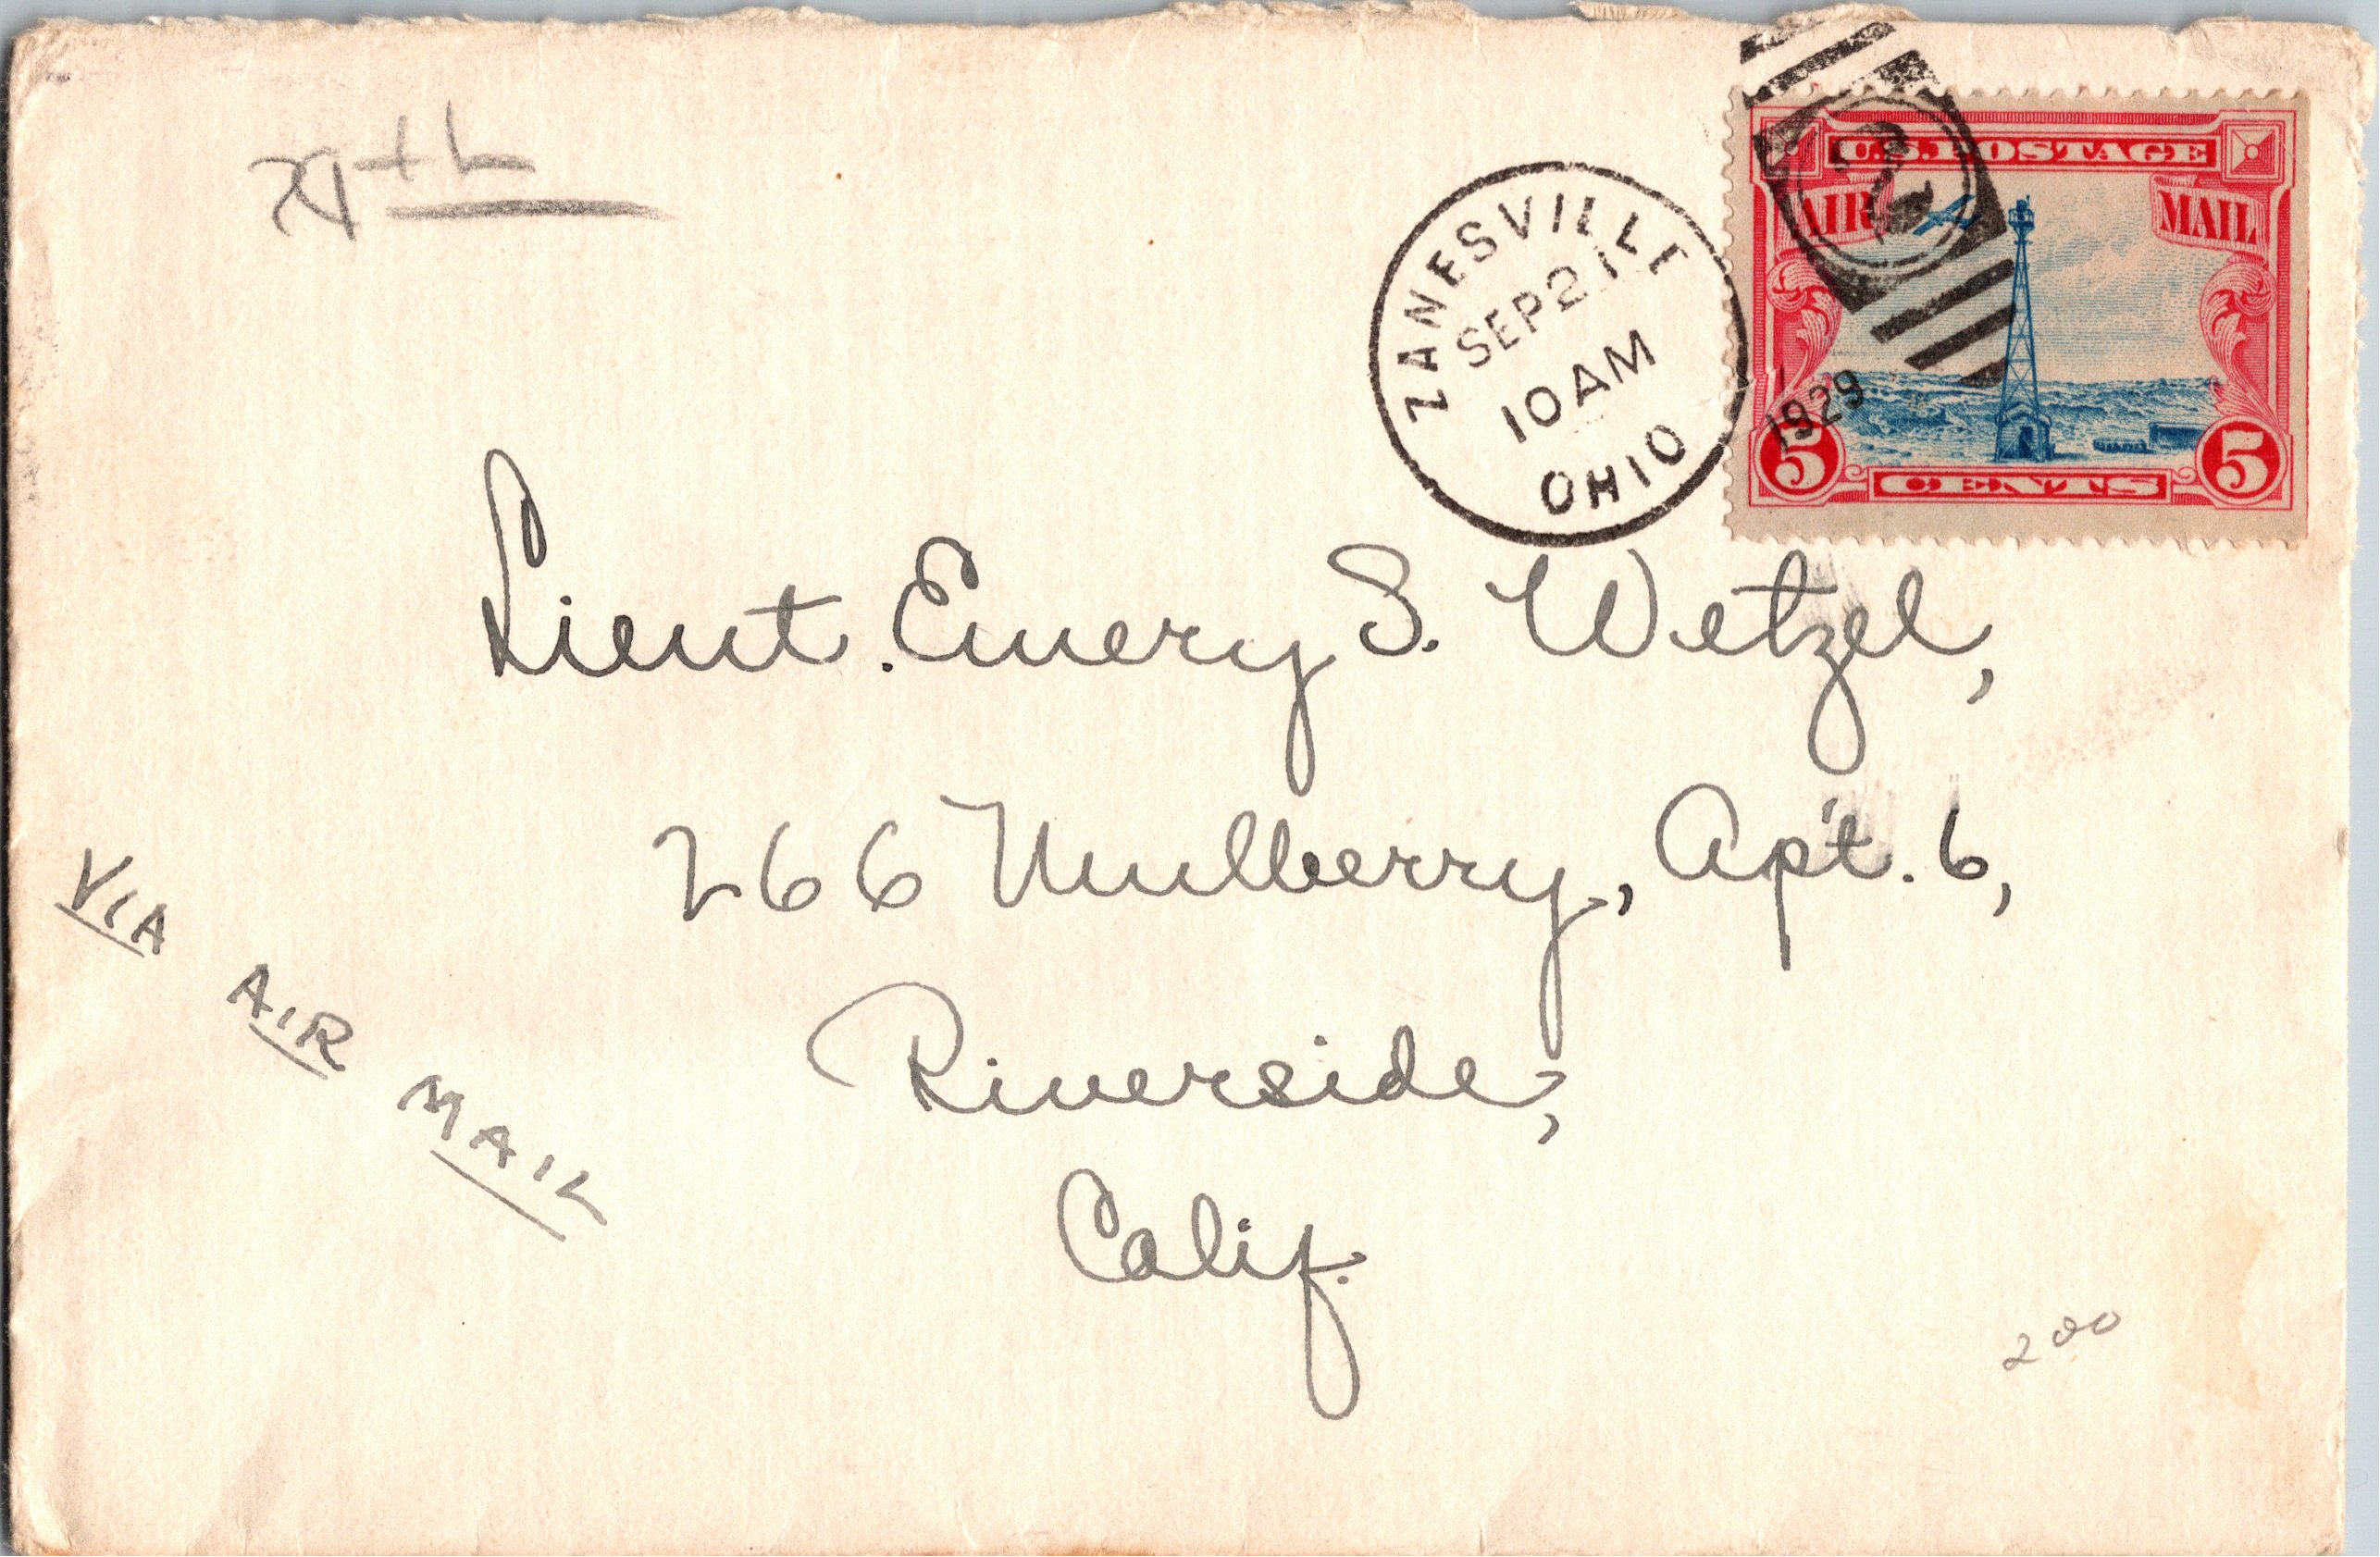 U.S. POSTAGE
AIR MAIL
5 CENTS 5
2
1929
ZANESVILLE
SEP 21
10 AM
OHIO
Lieut. Emery S. Wetzel,
266 Mulberry, Ap't. 6,
Riverside,
Calif.
VIA AIR MAIL
200